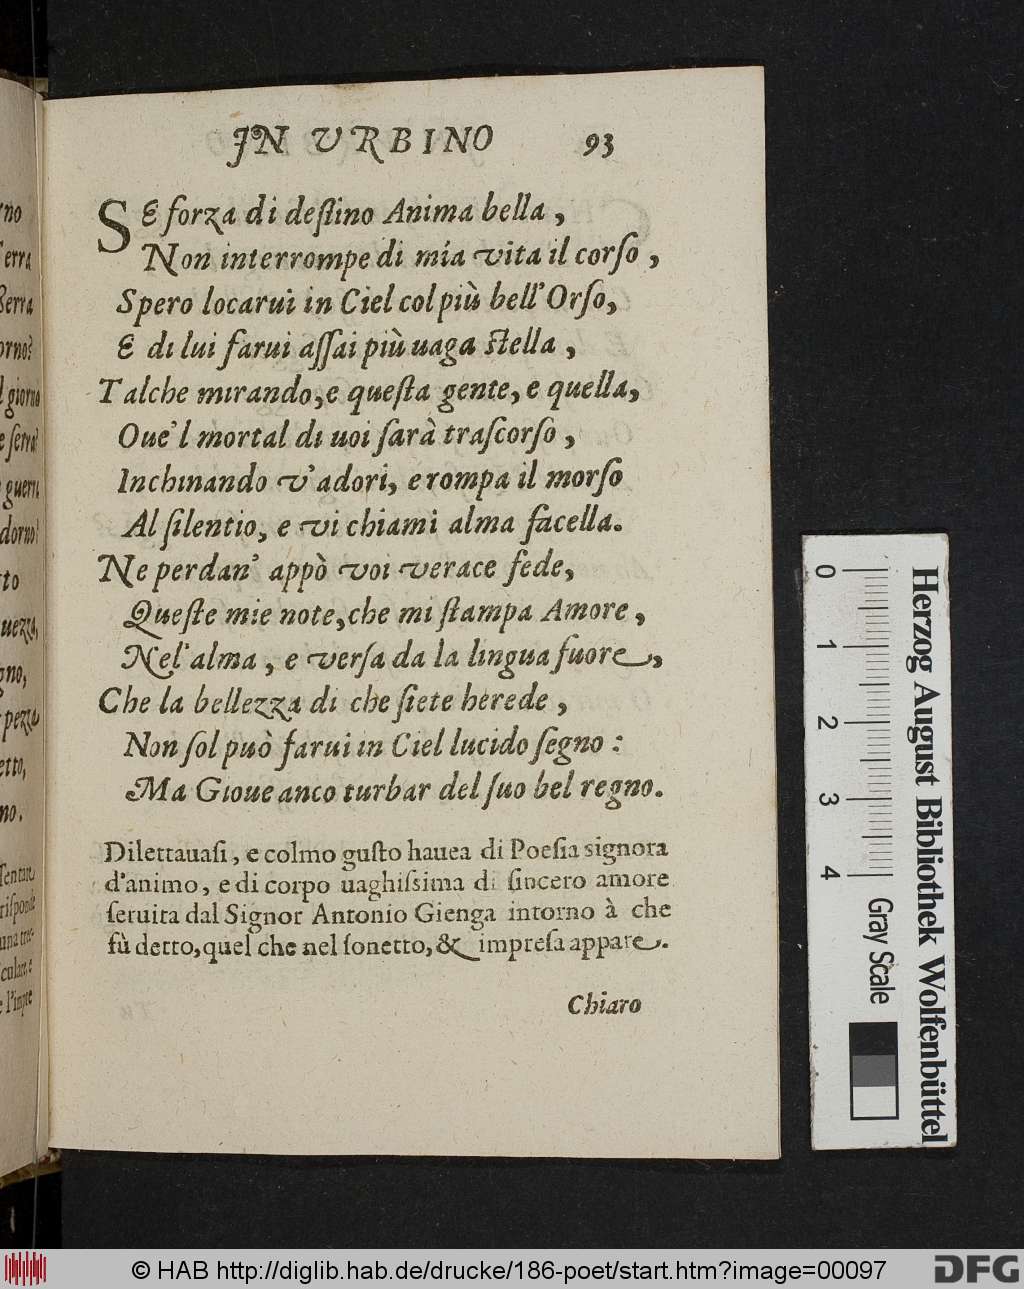 IN VRBINO 93
SE forza di deſtino Anima bella ,
Non interrompe di mia vita il corſo ,
Spero locarui in Ciel col più bell'Orſo,
E di lui farui aſſai più uaga ſtella ,
Talche mirando, e queſta gente, e quella,
Oue'l mortal di uoi ſarà traſcorſo ,
Inchinando v'adori, e rompa il morſo
Al ſilentio, e vi chiami alma facella.
Ne perdan' appò voi verace fede,
Queſte mie note, che mi ſtampa Amore ,
Nel'alma , e verſa da la lingua fuore ,
Che la bellezza di che ſiete herede ,
Non ſol può farui in Ciel lucido ſegno :
Ma Gioue anco turbar del ſuo bel regno.
Dilettauaſi , e colmo guſto hauea di Poeſia signora
d'animo , e di corpo uaghiſsima di ſincero amore
ſeruita dal Signor Antonio Gienga intorno à che
fù detto, quel che nel ſonetto, & impreſa appare .
Chiaro
rno
Terra
Serra
orno?
l giorno
e ſerra?
guerra
dorno?
tto
uezza,
gno,
ſpezza
etto,
no.
ſentare
riſponde
una tra-
culare, e
e l'impre
0 1 2 3 4
Gray Scale
Herzog August Bibliothek Wolfenbüttel
© HAB http://diglib.hab.de/drucke/186-poet/start.htm?image=00097
DFG